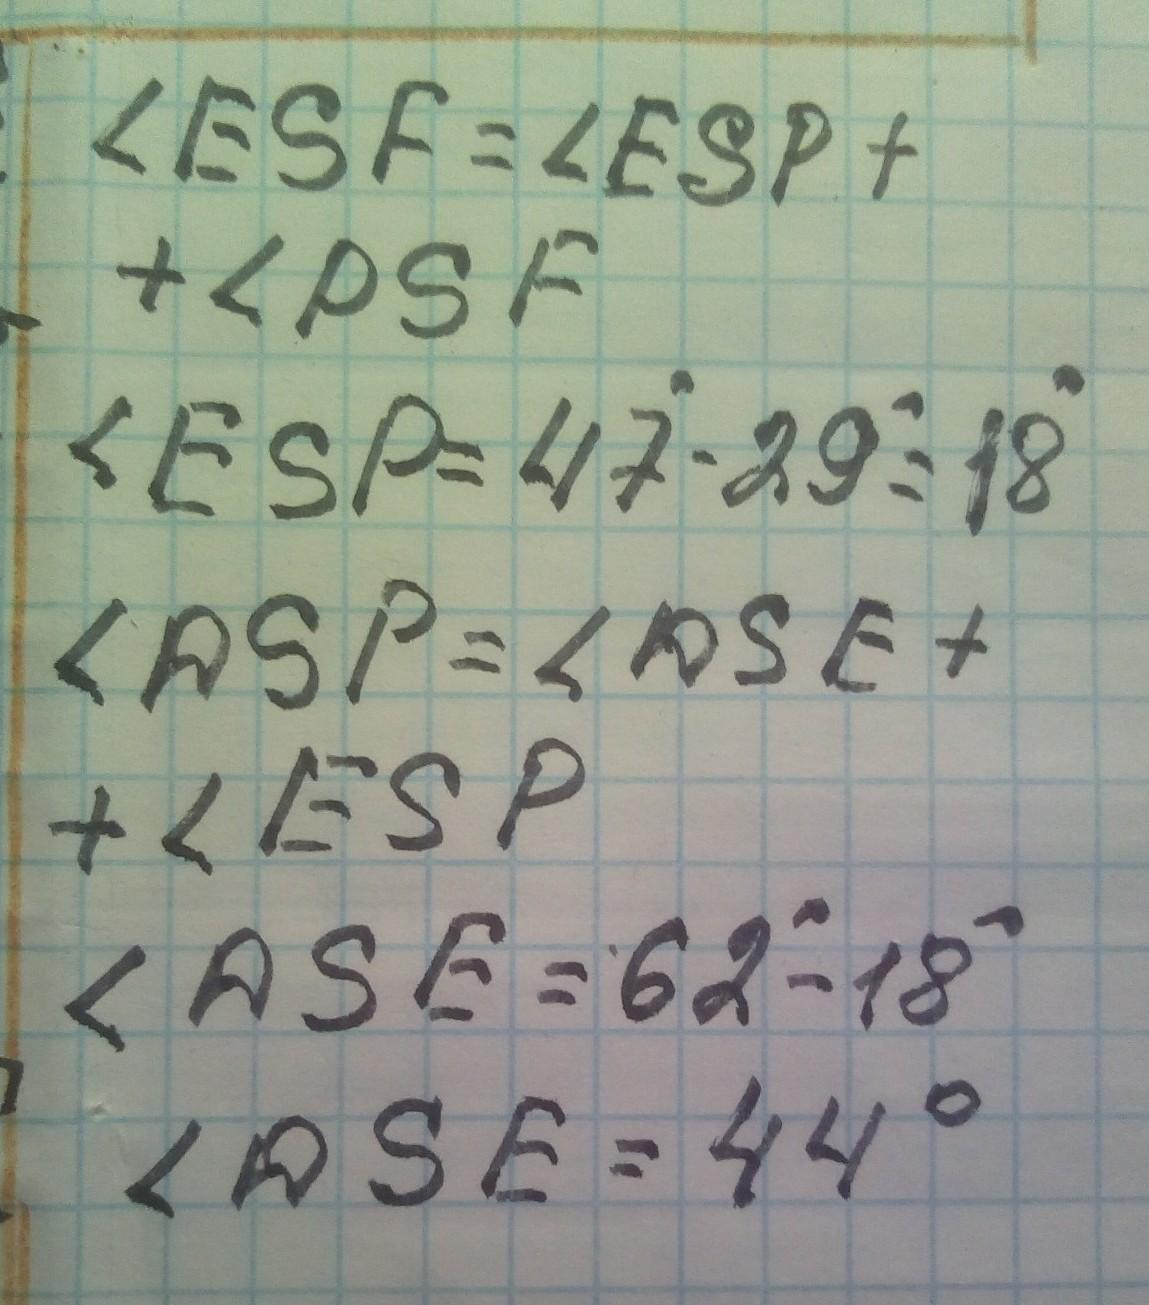 ∠ESF=∠ESP+
+∠PSF
∠ESP=47°-29°=18°
∠ASP=∠ASE+
+∠ESP
∠ASE=62°-18°
∠ASE=44°